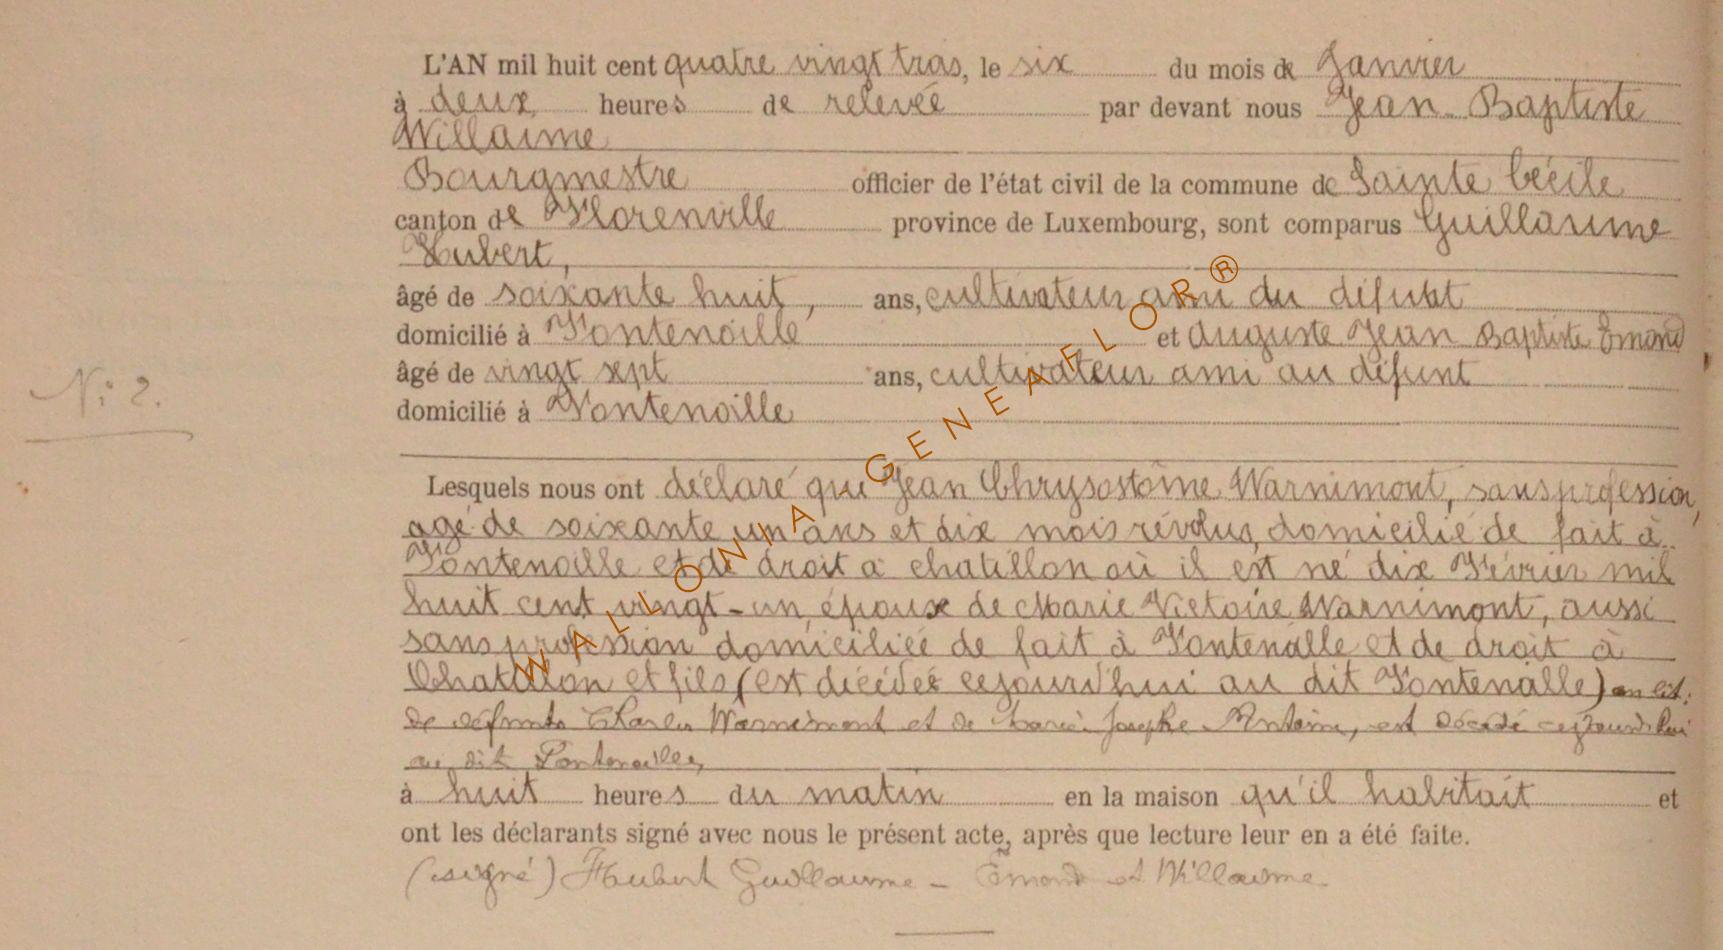 L'AN mil huit cent quatre vingt trois, le six du mois de Janvier
à deux heures de relevée par devant nous Jean-Baptiste
Willaime
Bourgmestre officier de l'état civil de la commune de Sainte Cécile
canton de Florenville province de Luxembourg, sont comparus Guillaume
Hubert,
âgé de soixante huit, ans, cultivateur ami du défunt
domicilié à Fontenoille et Auguste Jean Baptiste Emond
âgé de vingt sept ans, cultivateur ami au défunt
N: 2.
domicilié à Fontenoille
Lesquels nous ont déclaré que Jean Chrysostôme Warnimont, sans profession,
agé de soixante un ans et dix mois révolus, domicilié de fait à
Fontenoille et de droit à chatillon où il est né dix Février mil
huit cent vingt-un, époux de Marie Victoire Warnimont, aussi
sans profession domiciliée de fait à Fontenoille et de droit à
Chatillon et fils (est décédée cejourd'hui au dit Fontenoille)
de défunts Charles Warnimont et de Marie Josephe Antoine, est décédé cejourdhui
au dit Fontenoille,
à huit heures du matin en la maison qu'il habitait et
ont les déclarants signé avec nous le présent acte, après que lecture leur en a été faite.
(signé) Hubert Guillaume - Emond et Willaime
WALLONIA - GENEAFLOR®